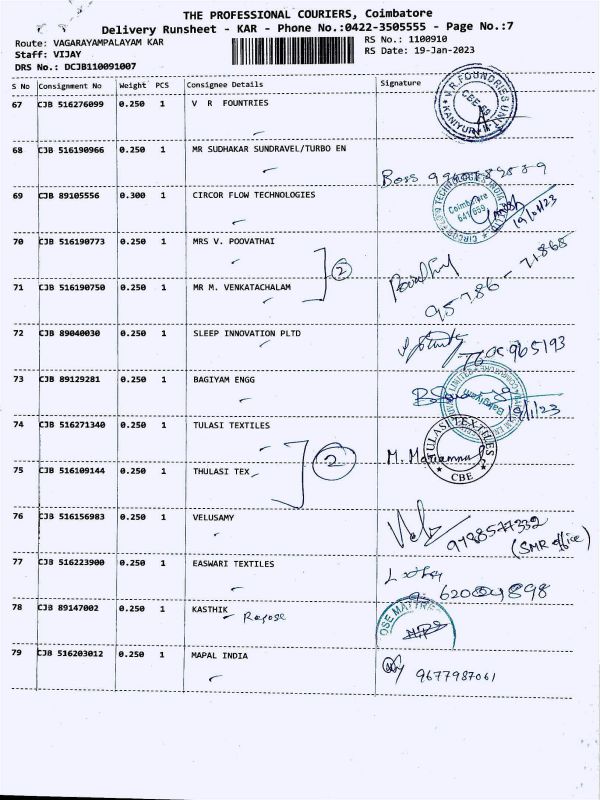 THE PROFESSIONAL COURIERS, Coimbatore
Delivery Runsheet - KAR - Phone No.:0422-3505555 - Page No.:7
Route: VAGARAYAMPALAYAM KAR
RS No.: 1100910
Staff: VIJAY
RS Date: 19-Jan-2023
DRS No.: DCJB110091007
S No Consignment No Weight PCS Consignee Details Signature
67 CJB 516276099 0.250 1 V R FOUNTRIES
V.R.FOUNDRIES UNIT
KANIYUR
68 CJB 516190966 0.250 1 MR SUDHAKAR SUNDRAVEL/TURBO EN
Boss
69 CJB 89105556 0.300 1 CIRCOR FLOW TECHNOLOGIES
CIRCOR FLOW TECHNOLOGIES INDIA
Coimbatore
641 659
19/01/23
70 CJB 516190773 0.250 1 MRS V. POOVATHAI
2
71 CJB 516190750 0.250 1 MR M. VENKATACHALAM
95786-71865
72 CJB 89040030 0.250 1 SLEEP INNOVATION PLTD
73 CJB 89129281 0.250 1 BAGIYAM ENGG
Bagiyam
19/1/23
74 CJB 516271340 0.250 1 TULASI TEXTILES
TULASI TEXTILES
CBE
2
75 CJB 516109144 0.250 1 THULASI TEX
76 CJB 516156983 0.250 1 VELUSAMY
(SMR office)
77 CJB 516223900 0.250 1 EASWARI TEXTILES
78 CJB 89147002 0.250 1 KASTHIK
79 CJB 516203012 0.250 1 MAPAL INDIA
9677987061